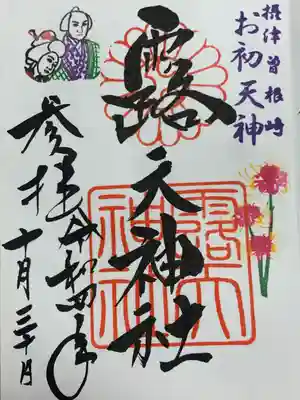 摂津曽根崎
お初天神
露天神社
奉拝令和四年
十月三十日
露天
神社